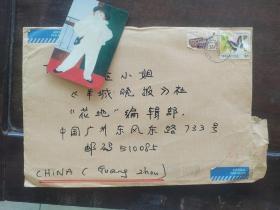 小姐
《羊城晚报》社
"花地"编辑部.
中国广州东风东路733号
邮码 510085
CHINA (Guang zhou)